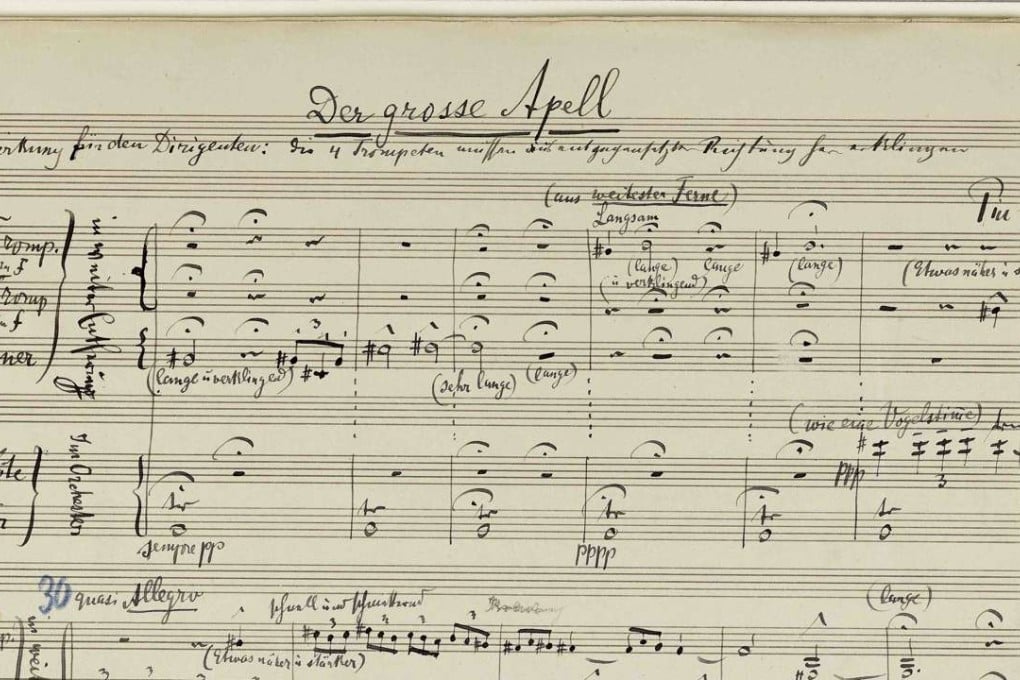 Der grosse Apell
für den Dirigenten: die 4 Trompeten müssen aus entgegengesetzter Richtung her erklingen
(aus weitester Ferne)
Langsam
(lange) lange (lange)
(u verklingend)
in F
in weiter Entfernung
(lange u verklingend) (sehr lange) (lange)
3
(wie eine Vogelstimme)
Im Orchester
ppp
3
tr tr tr tr tr tr
sempre pp pppp
30 quasi Allegro schnell und schmetternd (lange)
(Etwas näher u stärker)
3 3 3 3